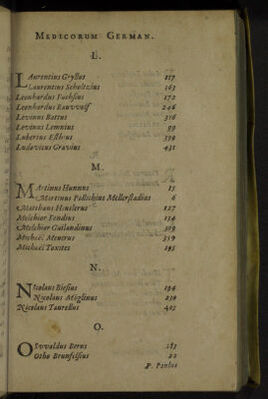 MEDICORUM GERMAN.
L.
Laurentius Gryllus 117
Laurentius Scholtzius 163
Leonhardus Fuchsius 172
Leonhardus Rauvvolf 246
Levinus Battus 316
Levinus Lemnius 99
Lubertus Esthius 339
Ludovicus Gravius 431
M.
Martinus Hunnus 15
Martinus Pollichius Mellerstadius 6
Matthæus Heuslerus 127
Melchior Fendius 134
Melchior Guilandinus 309
Michael Meurerus 319
Michael Toxites 195
N.
Nicolaus Biesius 194
Nicolaus Möglinus 230
Nicolaus Taurellus 402
O.
Osvvaldus Berus 183
Otho Brunfelsius 22
P. Paulus